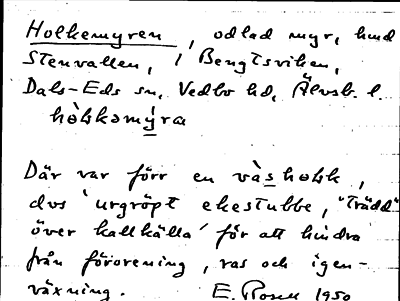 Holkemyren, odlad myr, hmd
Stenvallen, i Bengtsviken,
Dals-Eds sn, Vedbo hd, Älvsb. l.
hòłkəmýra
Där var förr en vàsholk,
dvs 'urgröpt ekestubbe, "trädd"
över kallkälla' för att hindra
från förorening, ras och igen-
växning. E. Rosell 1950